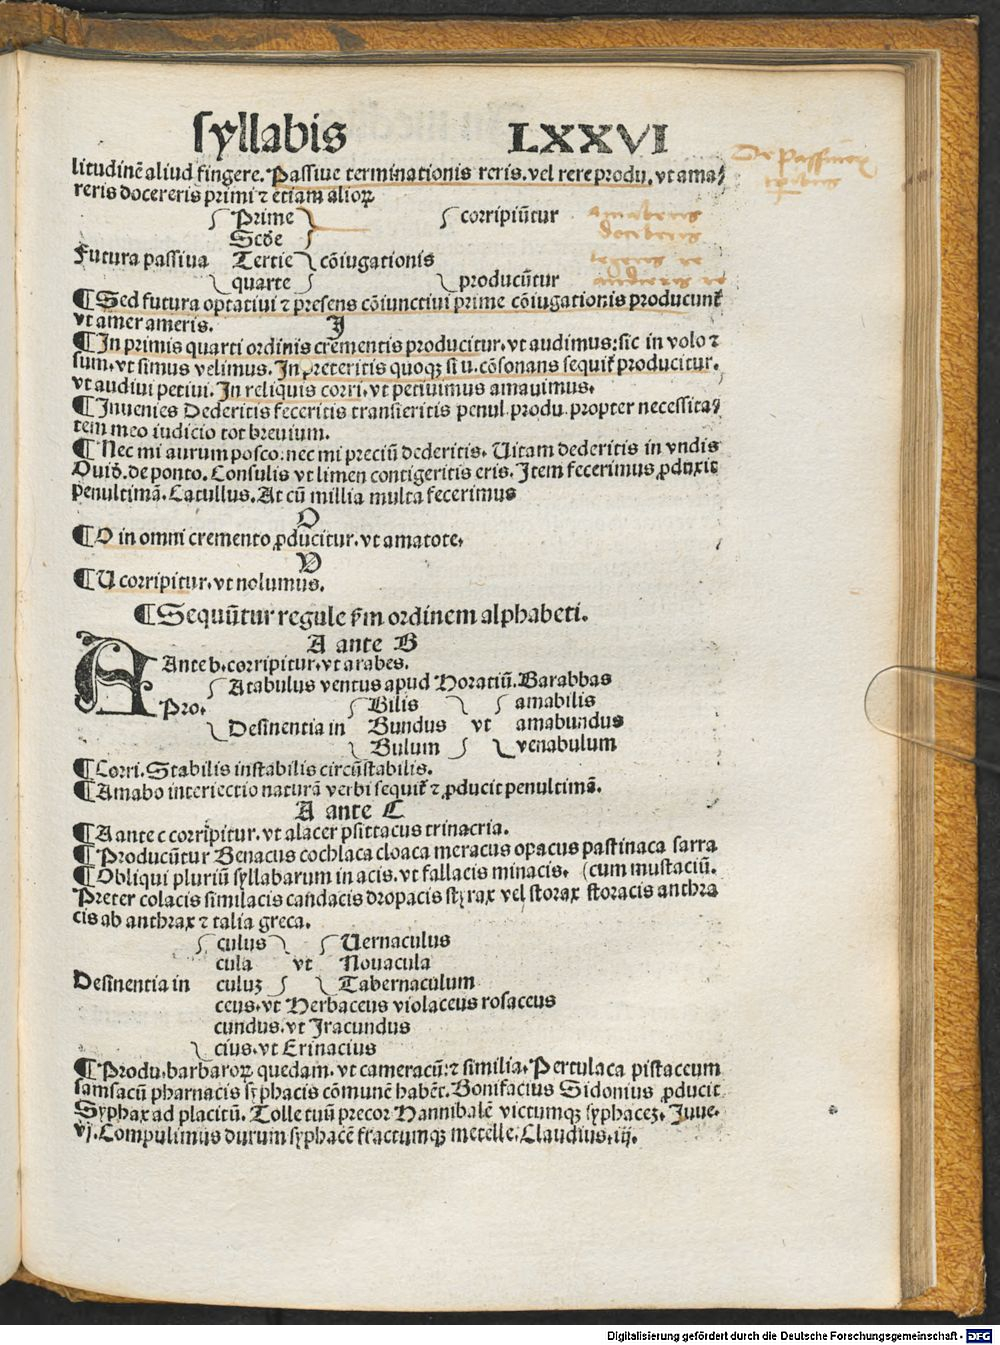 syllabis LXXVI
litudinē aliud fingere. Passiue terminationis reris. vel rere produ. vt ama⸗
reris docereris primi ⁊ etiam alioꝝ
Prime corripiūtur
Scd̄e
Futura passiua Tertie cōiugationis
quarte producūtur
¶ Sed futura optatiui ⁊ presens cōiunctiui prime cōiugationis producunt̄
vt amer ameris.
I
¶ In primis quarti ordinis crementis producitur. vt audimus: sic in volo ⁊
sum. vt simus velimus. In preteritis quoqꝫ si u. cōsonans sequit̄ producitur.
vt audiui petiui. In reliquis corri. vt petiuimus amauimus.
¶ Inuenies Dederitis feceritis transieritis penul. produ. propter necessita⸗
tem meo iudicio tot breuium.
¶ Nec mi aurum posco: nec mi preciū dederitis. Uitam dederitis in vndis
Ouid. de ponto. Consulis vt limen contigeritis eris. Item fecerimus ꝓduxit
penultimā. Catullus. At cū millia multa fecerimus
O
¶ O in omni cremento ꝓducitur. vt amatote.
V
¶ U corripitur. vt nolumus.
¶ Sequūtur regule ẜm ordinem alphabeti.
A ante B
A Ante b. corripitur. vt arabes.
Atabulus ventus apud Horatiū. Barabbas
Pro. Bilis amabilis
Desinentia in Bundus vt amabundus
Bulum venabulum
¶ Corri. Stabilis instabilis circūstabilis.
¶ Amabo interiectio naturā verbi sequit̄ ⁊ ꝓducit penultimā.
A ante C
¶ A ante c corripitur. vt alacer psittacus trinacria.
¶ Producūtur Benacus cochlaca cloaca meracus opacus pastinaca sarra
¶ Obliqui pluriū syllabarum in acis. vt fallacis minacis. (cum mustaciū.
Preter colacis similacis candacis dropacis styrax vel storax storacis anthra
cis ab anthrax ⁊ talia greca.
culus Uernaculus
cula vt Nouacula
Desinentia in culuꝫ Tabernaculum
ceus. vt Herbaceus violaceus rosaceus
cundus. vt Iracundus
cius. vt Erinacius
¶ Produ. barbaroꝝ quedam. vt cameracū: ⁊ similia. Pertulaca pistaceum
samsacū pharnacis syphacis cōmune habēt. Bonifacius Sidonius ꝓducit
Syphax ad placitū. Tolle tuū precor Hannibalē victumqꝫ syphaceꝫ. Iuue.
vj. Compulimus durum syphacē fractumqꝫ metelle. Claudius. iij.
De passiuis
amaberis
doceberis
Digitalisierung gefördert durch die Deutsche Forschungsgemeinschaft - DFG